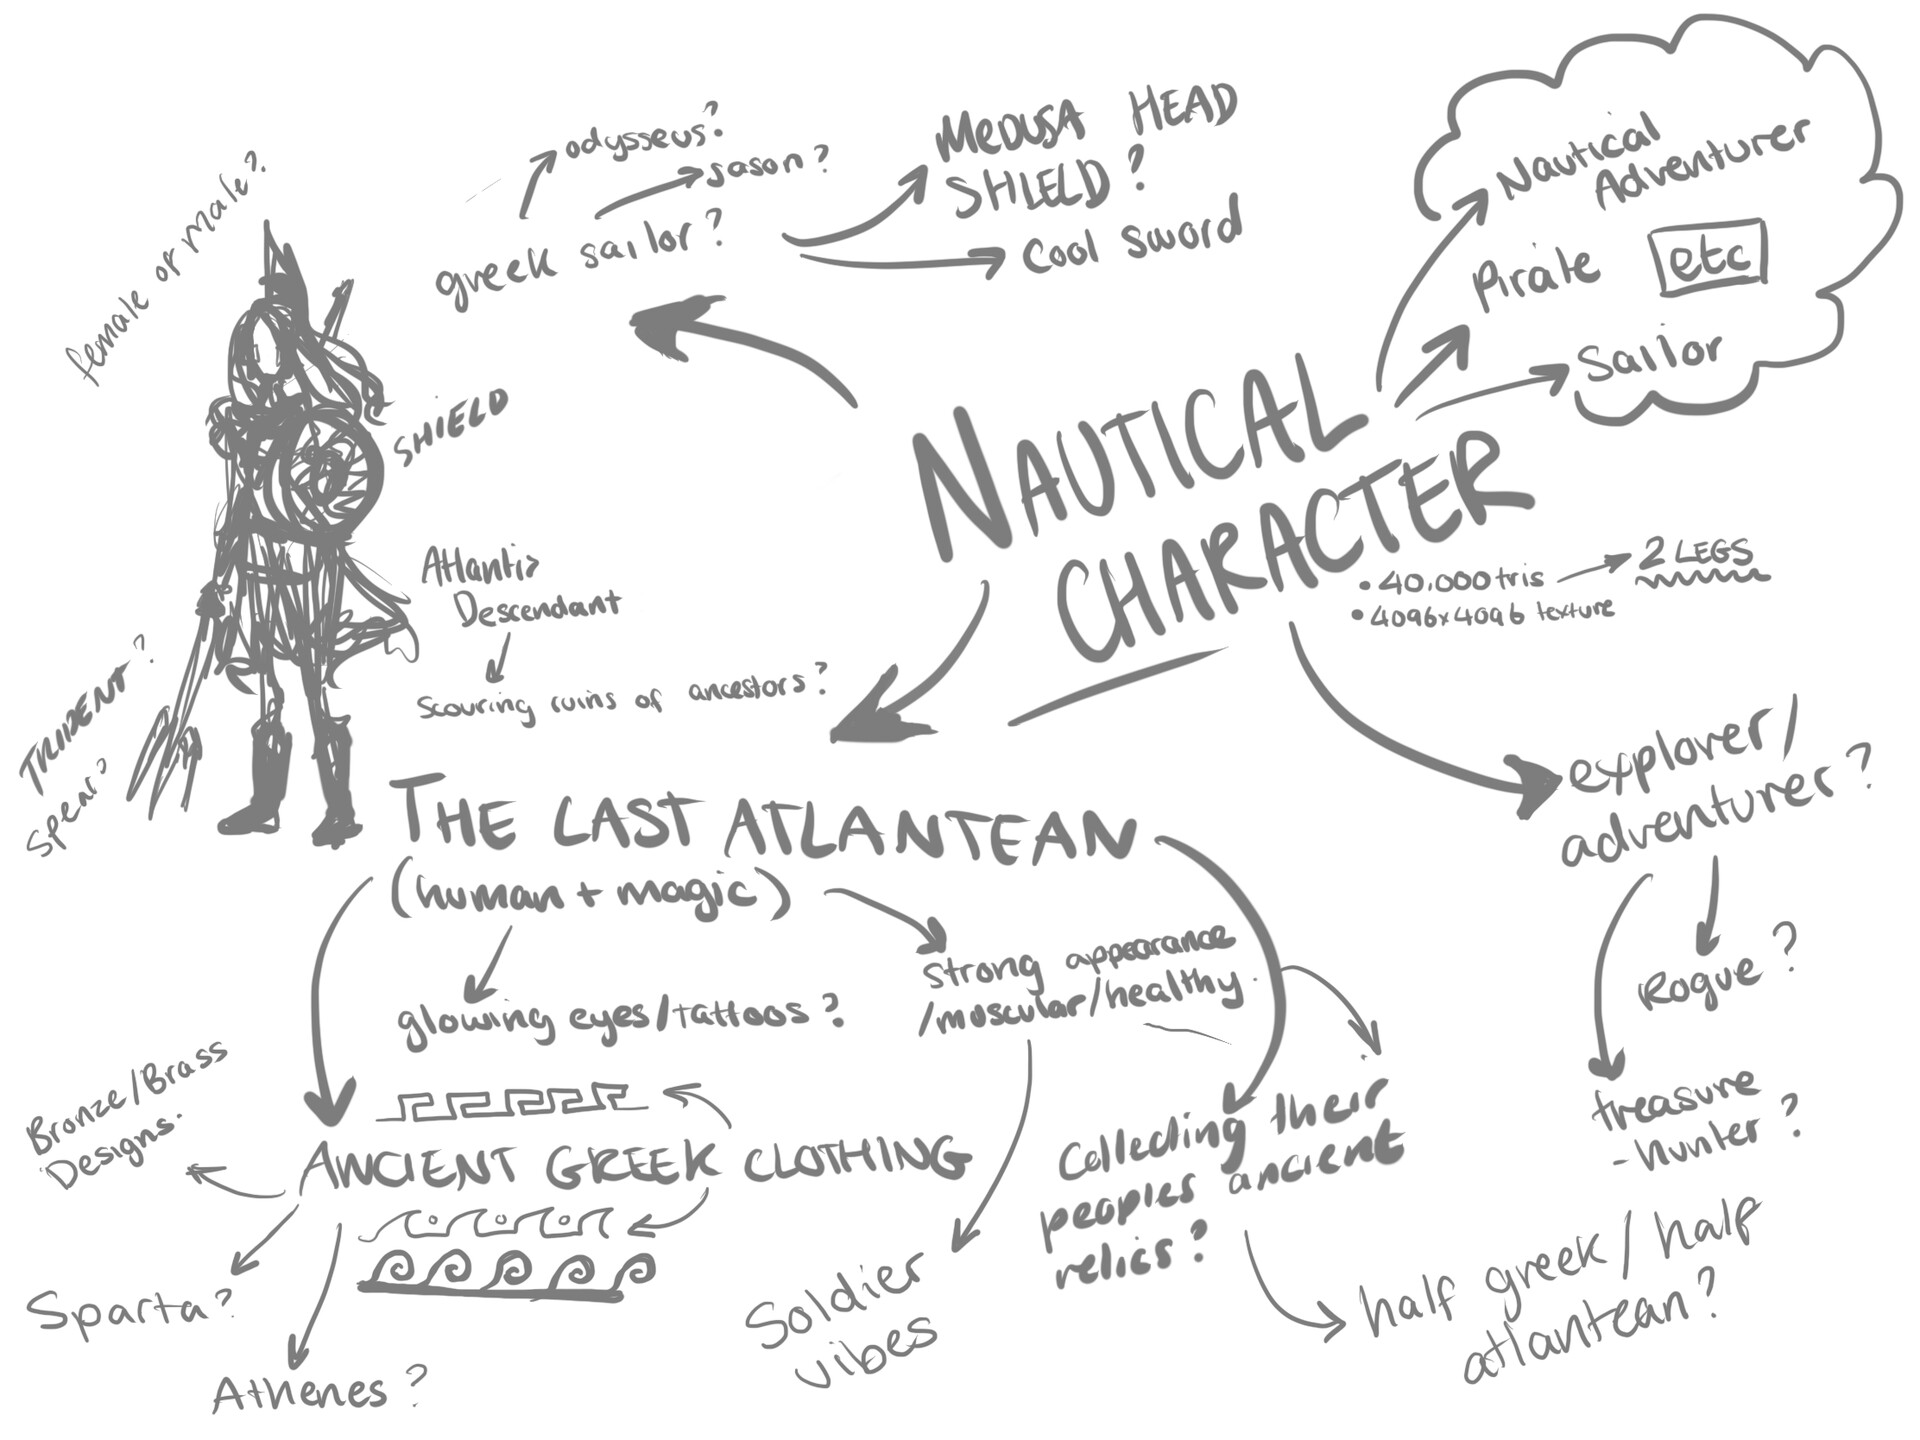 female or male?
odysseus?
sason?
greek sailor?
MEDUSA HEAD
SHIELD?
Cool sword
Nautical
Adventurer
Pirate
etc
Sailor
NAUTICAL
CHARACTER
• 40.000 tris
2 LEGS
• 4096x4096 texture
SHIELD
Atlantis
Descendant
Scouring ruins of ancestors?
TRIDENT?
Spear?
THE LAST ATLANTEAN
(human + magic)
glowing eyes/tattoos?
strong appearance
/muscular/healthy.
explorer/
adventurer?
Rogue?
treasure
-hunter?
Bronze/Brass
Designs.
ANCIENT GREEK CLOTHING
Sparta?
Athenes?
Soldier
vibes
Collecting their
peoples ancient
relics?
half greek/half
atlantean?